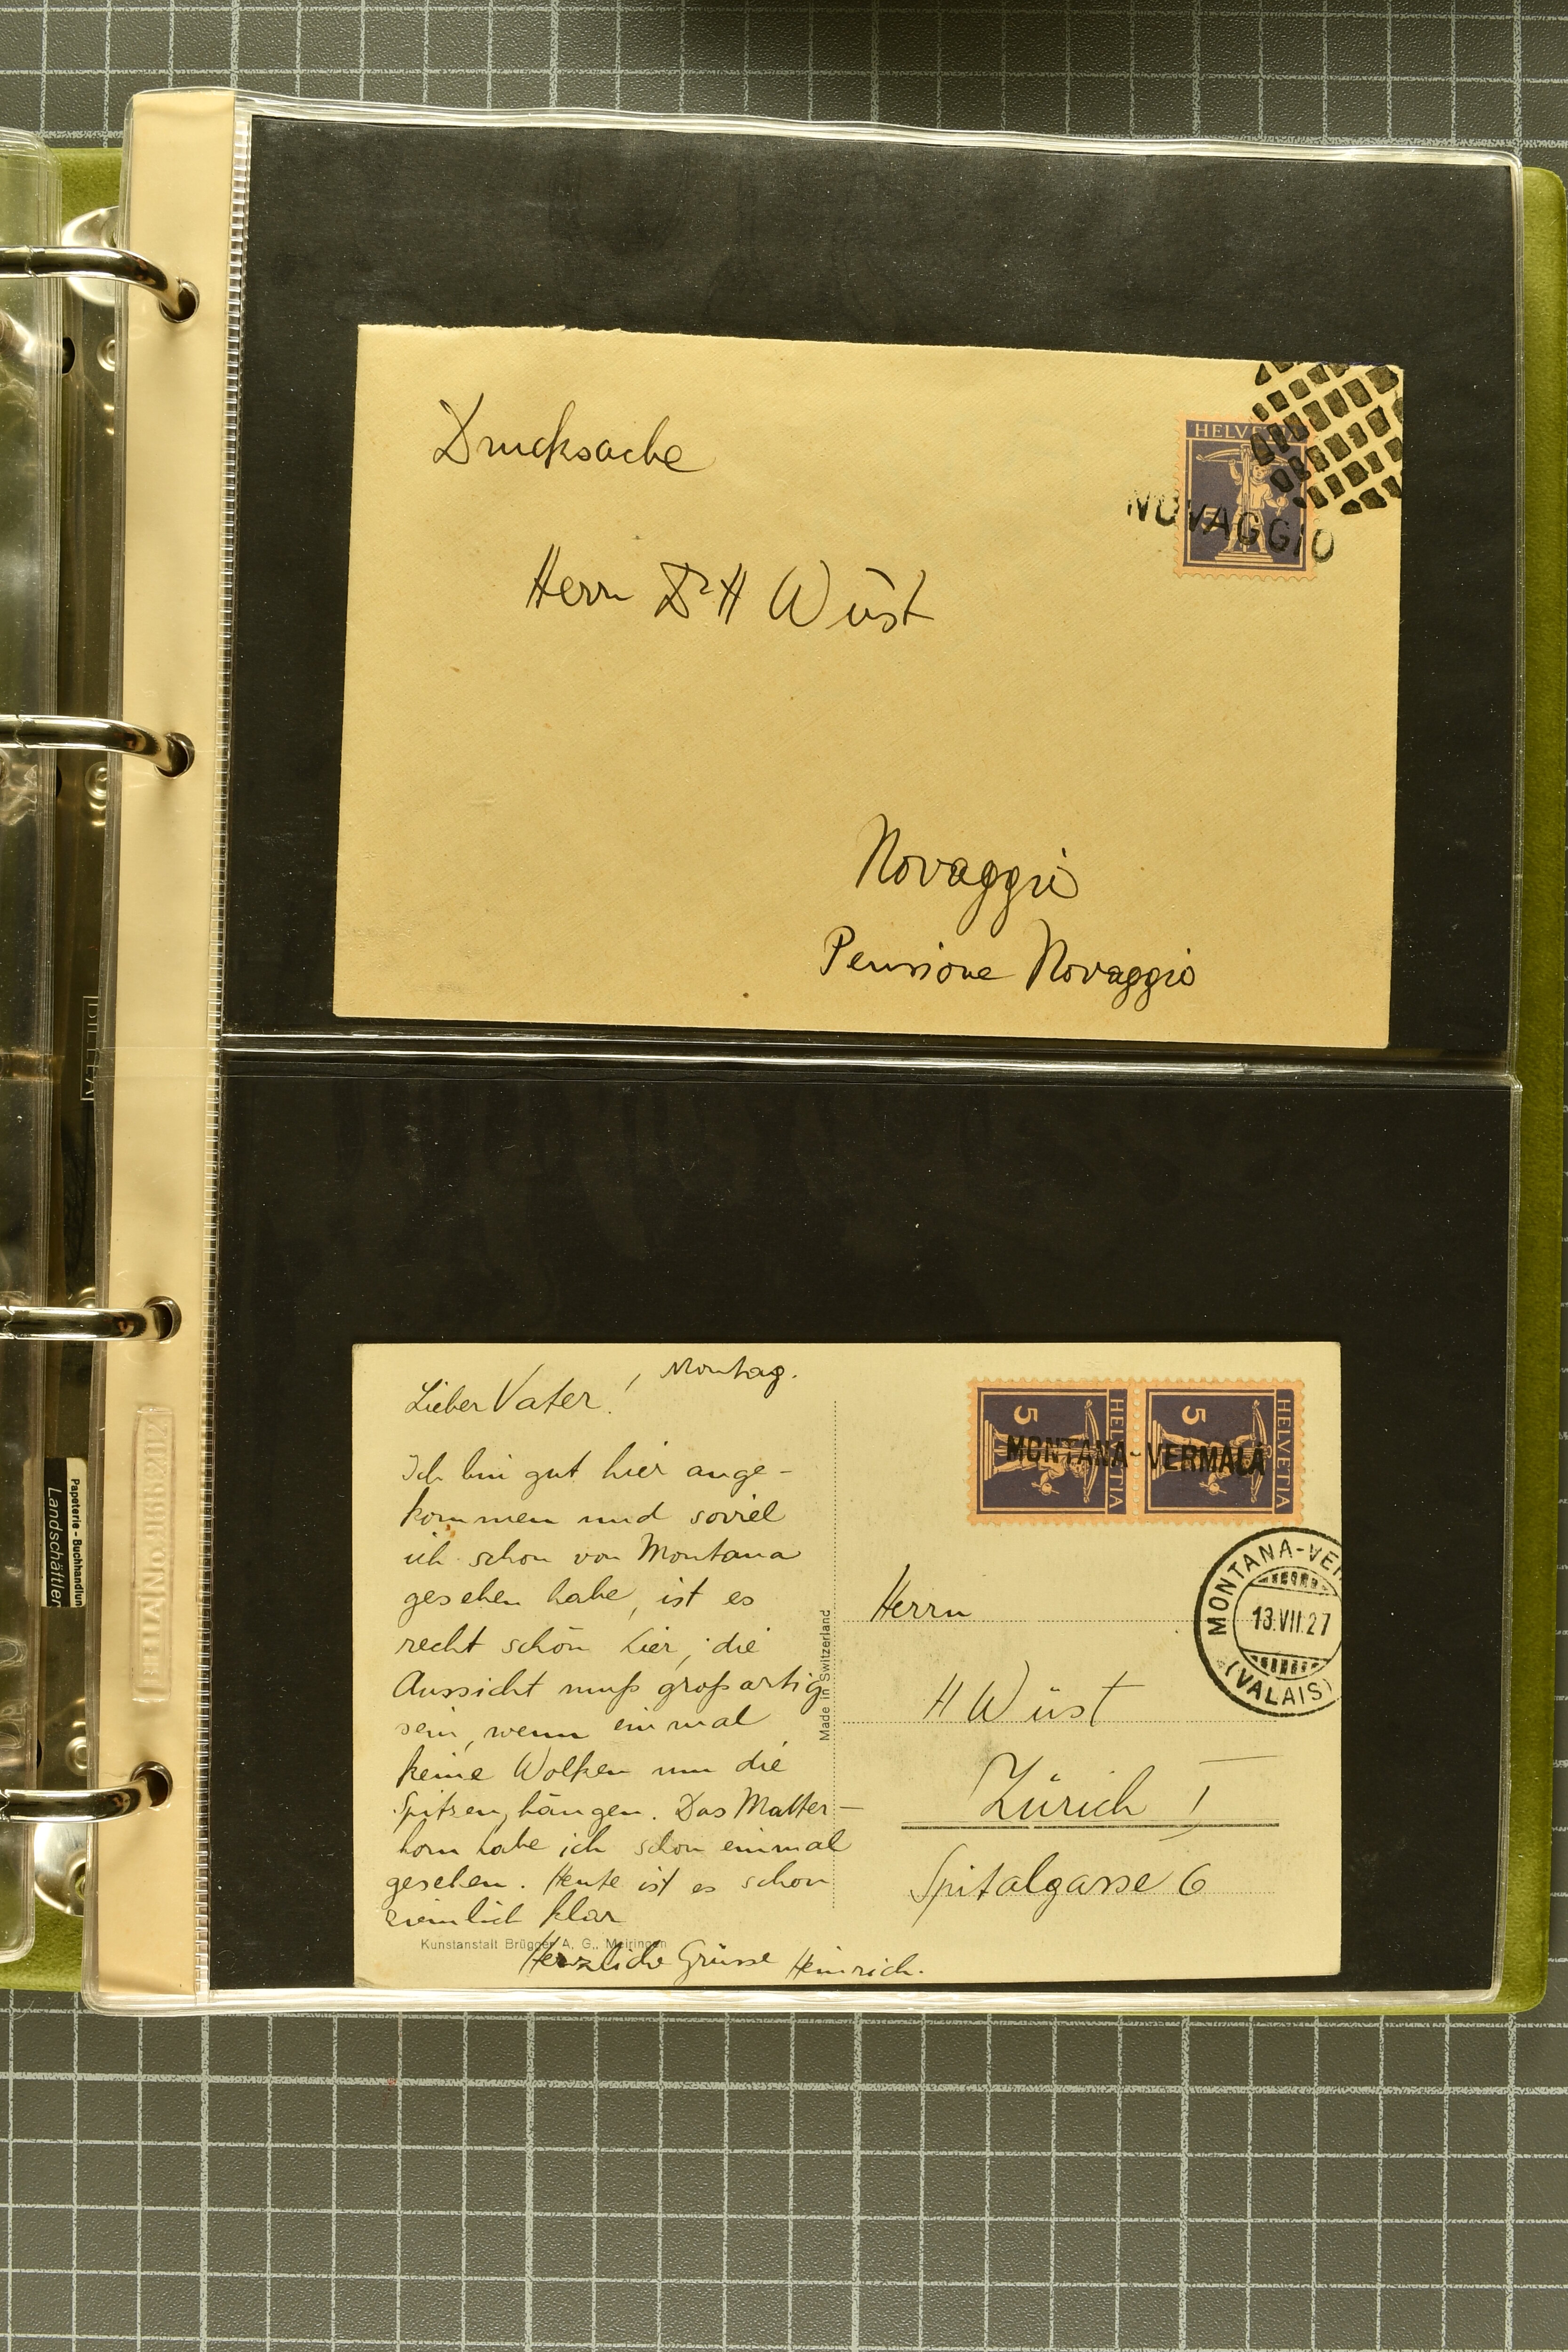 Drucksache
HELVETIA
5
NOVAGGIO
Herrn Dr H Wüst
Novaggio
Pensione Novaggio
Lieber Vater! Montag.
Ich bin gut hier ange-
kommen und soviel
ich schon von Montana
gesehen habe, ist es
recht schön hier, die
Aussicht muß großartig
sein, wenn einmal
keine Wolken um die
Spitzen hängen. Das Matter-
horn habe ich schon einmal
gesehen. Heute ist es schon
ziemlich klar
Herzliche Grüsse Heinrich.
Kunstanstalt Brügger A. G., Meiringen
Made in Switzerland
HELVETIA
5
HELVETIA
5
MONTANA-VERMALA
MONTANA-VER
13.VII.27
(VALAIS)
Herrn
H Wüst
Zürich I
Spitalgasse 6
Papeterie - Buchhandlun
Landschäftler